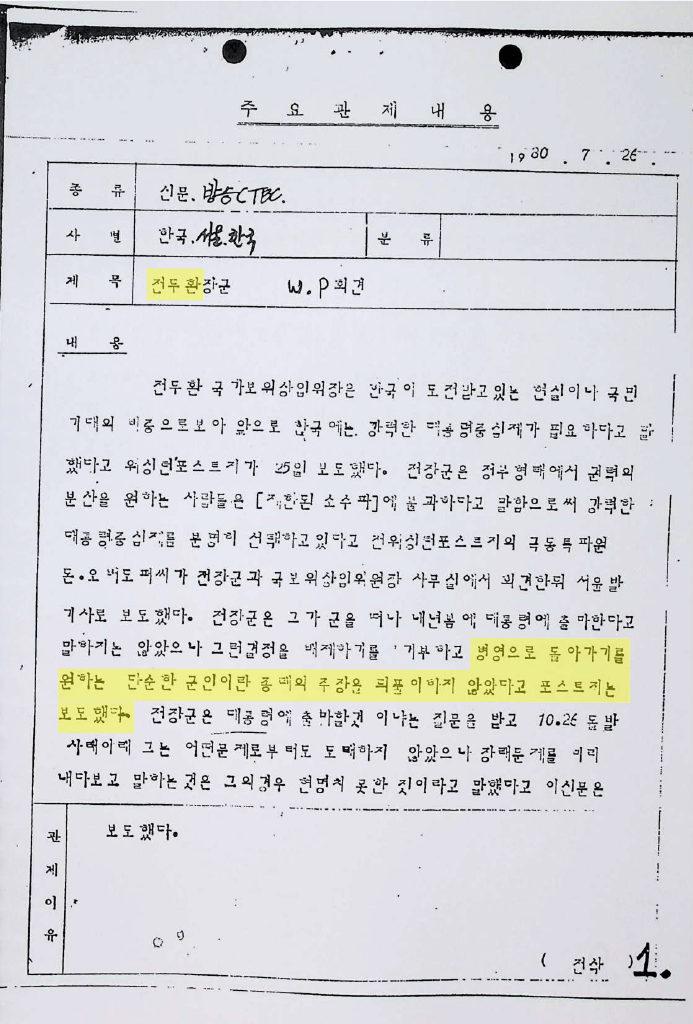 주요관제내용
1980. 7. 26.
종 류 신문.방송CTBC.
사 별 한국.서울.한국 분 류
제 목 전두환장군 W.P회견
내 용
전두환 국가보위상임위장은 한국이 도전받고있는 현실이나 국민
기대의 비중으로보아 앞으로 한국에는 강력한 대통령중심제가 필요하다고 말
했다고 워싱턴포스트지가 25일 보도했다. 전장군은 정부형태에서 권력의
분산을 원하는 사람들은 [제한된 소수파]에 불과하다고 말함으로써 강력한
대통령중심제를 분명히 선택하고있다고 전워싱턴포스트지의 극동특파원
돈.오버도퍼씨가 전장군과 국보위상임위원장 사무실에서 회견한뒤 서울발
기사로 보도했다. 전장군은 그가 군을 떠나 내년봄에 대통령에 출마한다고
말하지는 않았으나 그런결정을 배제하기를 거부하고 병영으로 돌아가기를
원하는 단순한 군인이란 종래의 주장을 되풀이하지 않았다고 포스트지는
보도했다. 전장군은 대통령에 출마할것 이냐는 질문을 받고 10.26 돌발
사태이래 그는 어떤문제로부터도 도태하지 않았으나 장래문제를 미리
내다보고 말하는것은 그의경우 현명치 못한 짓이라고 말했다고 이신문은
보도했다.
관제이유
( 전삭 ) 1.